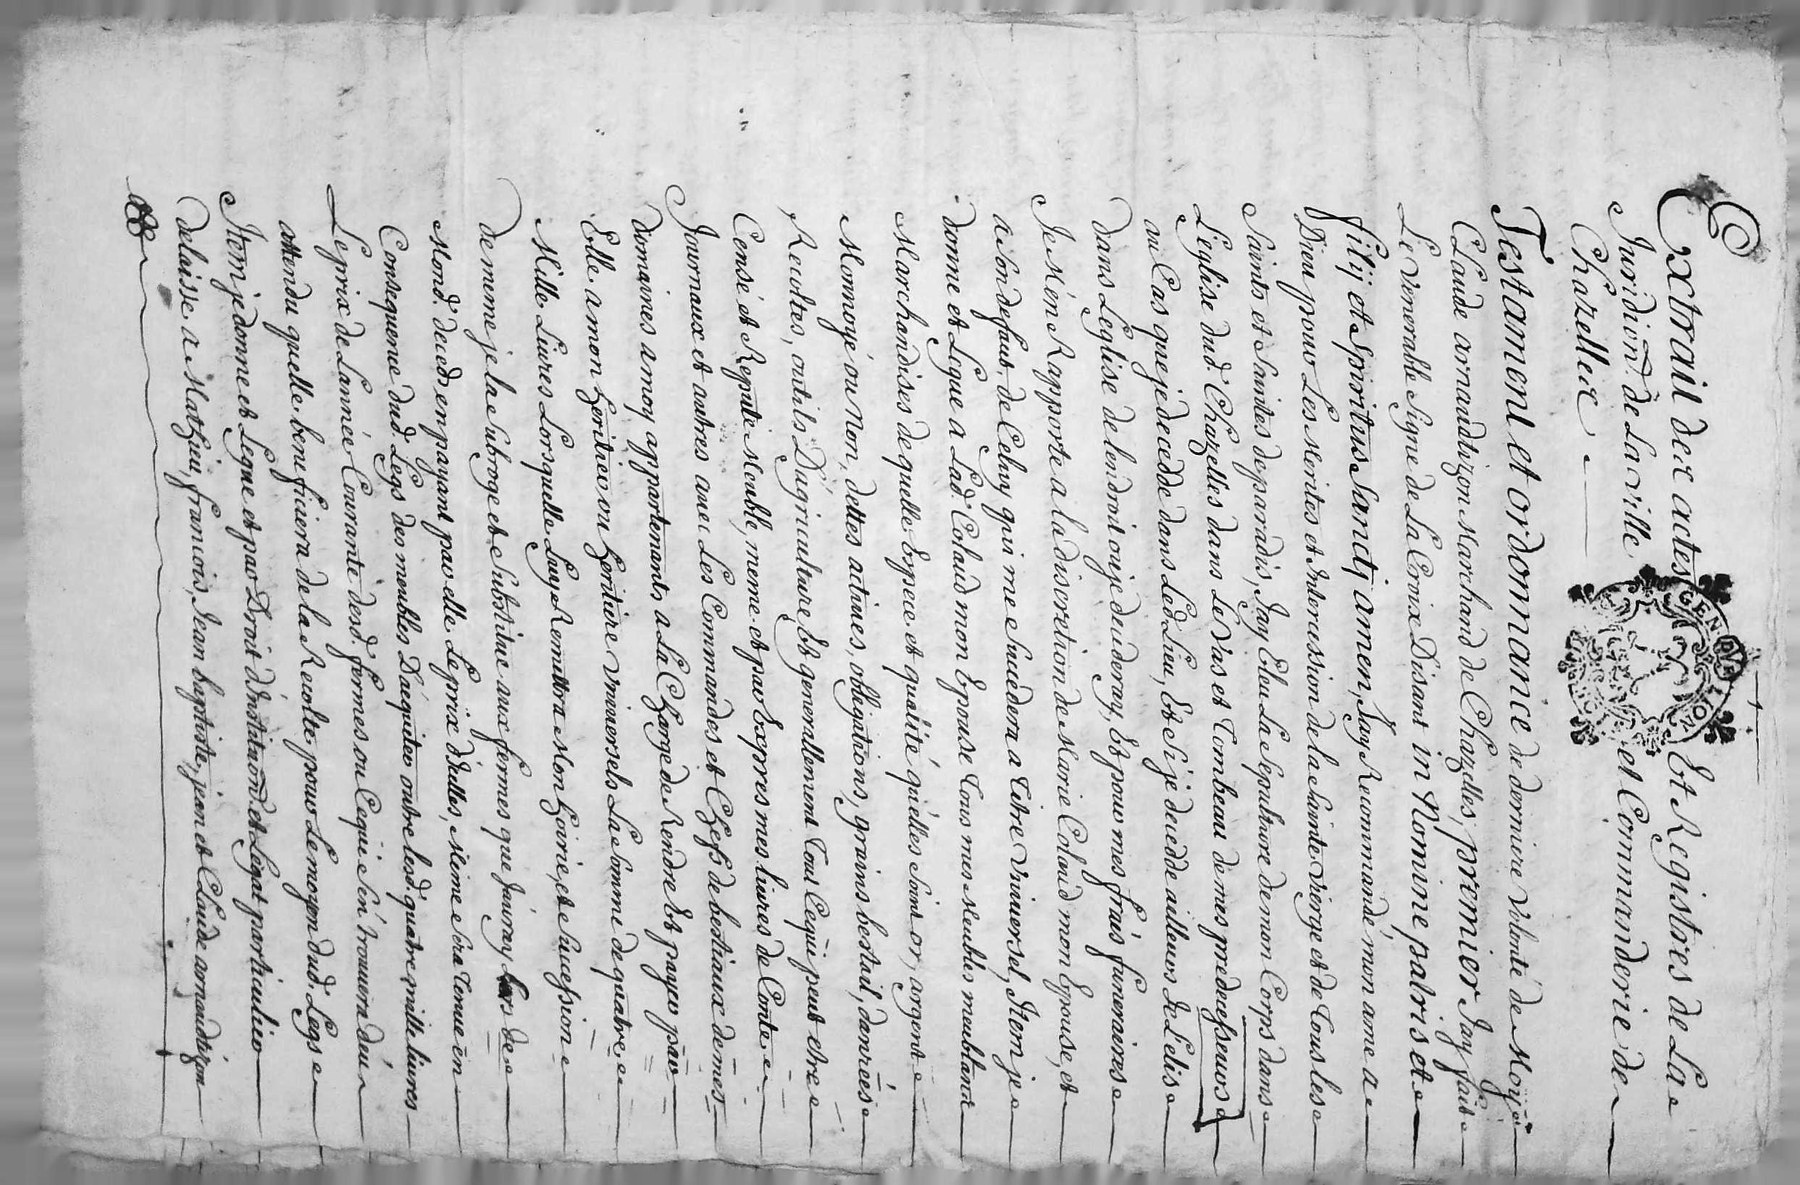 Extrait des actes Et Registres de La
Juridion de La ville et Commanderie de
Chazelle
Testament et ordonnance de derniere volonté de Moy
Claude arnaudtizon Marchand de Chazelles, premier Jay fait
Le Venerable Signe de La Croix Disant in Nomine patris et
filij et Spiritus Sancti amen, Jay Recommandé mon ame a
Dieu pour Les Merites et Intercession de la Sainte vierge et de tous les
Saints et Saintes de paradis, Jay Eleu La Sepulture de mon Corps dans
L'eglise dud. Chazelles dans Le Vas et Tombeau de mes predecesseurs
au Cas que je decedde dans Led. Lieu, Et Si je decedde ailleurs Je Lelis
dans L'eglise de lendroit ou je decederay, Et pour mes frais funeraires
Je M'en Rapporte a la discretion de Marie Colaud mon Epouse, et
a Son defaut de Celuy qui me Succedera a Titre Universel, Item je
donne et Legue a Lad. Colaud mon Epouse Tous mes Meubles meublant
Marchandises de quelle Espece et qualité quelles Soint or, argent
Monnoyé ou Non, dettes actives, obligations, grains bestail, danrées
Recoltes, outils D'agriculture Et generallement Tout Ce qui peut etre
Censé et Reputé Meuble, meme et par Expres mes livres de Conte
Journaux et autres avec Les Commandes et Chefs de bestiaux de mes
domaines a moy appartenants a La Charge de Rendre Et payer par
Elle a mon heritier ou heritiere universels La Somme de quatre
Mille Livres Lorsquelle Luy Remettra Mon hoirie et Succession
de mme je la Subroge et Substitue aux fermes que Jauray lors de
Mond. deceds en payant par elle Le prix dicelles, Meme Sera Tenue en
Consequence dud. Legs des meubles D'aquiter outre lesd. quatre mille livres
Le prix de Lannée Courante desd. fermes ou Ce qui Sen trouvera dû
attendu quelle beneficiera de la Recolte pour Le moyen dud. Legs
Item je donne et Legue et par Droit d'Institution et Legat particulier
delaisse a Mathieu, francois, Jean baptiste, jean et Claude arnaudtizon